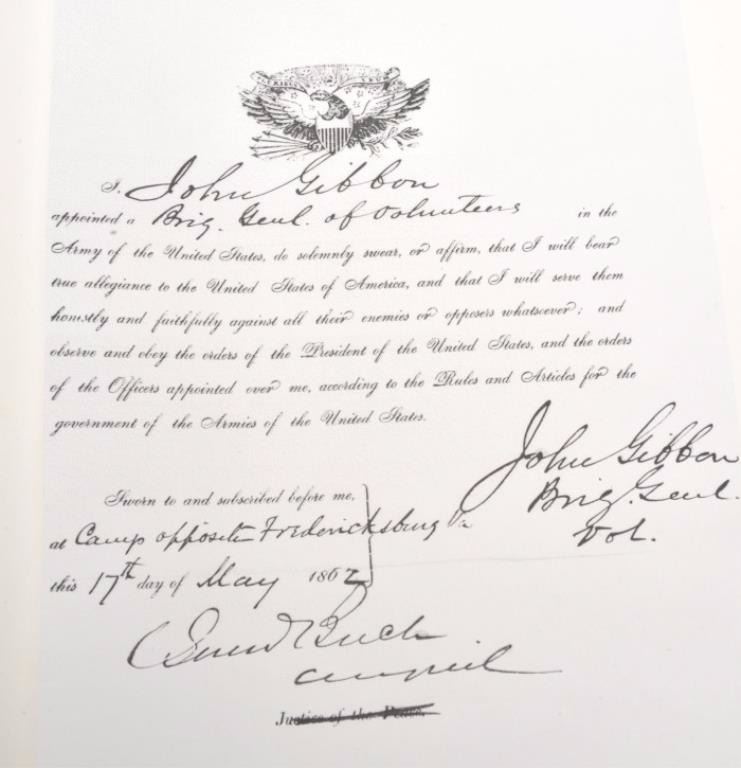 I, John Gibbon
appointed a Brig. Genl. of Volunteers in the
Army of the United States, do solemnly swear, or affirm, that I will bear
true allegiance to the United States of America, and that I will serve them
honestly and faithfully against all their enemies or opposers whatsoever; and
observe and obey the orders of the President of the United States, and the orders
of the Officers appointed over me, according to the Rules and Articles for the
government of the Armies of the United States.
John Gibbon
Brig. Genl.
Vol.
Sworn to and subscribed before me,
at Camp opposite Fredericksburg Va
this 17th day of May 1862
Justice of the Peace.